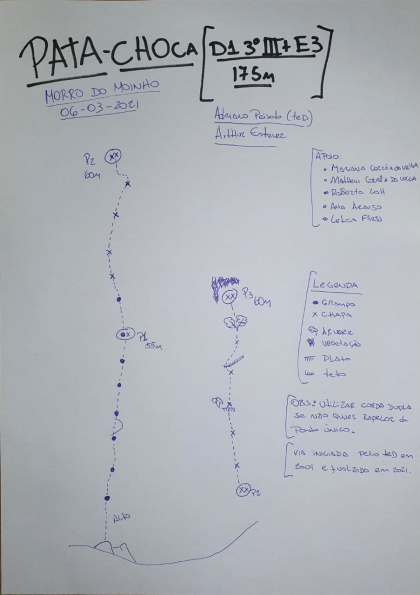 PATA-CHOCA [D1 3º III+ E3]
175m
MORRO DO MOINHO
06-03-2021
Adriano Peixoto (teD)
Arthur Estevez
APOIO:
• Mariana
• Matheus
• Roberto
• Ana Afonso
• Leticia
P2
60m
P1
55m
ALTO
P3
60m
P2
LEGENDA
• GRAMPO
x CHAPA
ÁRVORE
VEGETAÇÃO
PLATÔ
teto
OBS: UTILIZAR CORDA DUPLA
SE NÃO QUISER RAPELAR DE
PONTO ÚNICO.
VIA INICIADA PELO teD EM
2001 E FINALIZADO EM 2021.